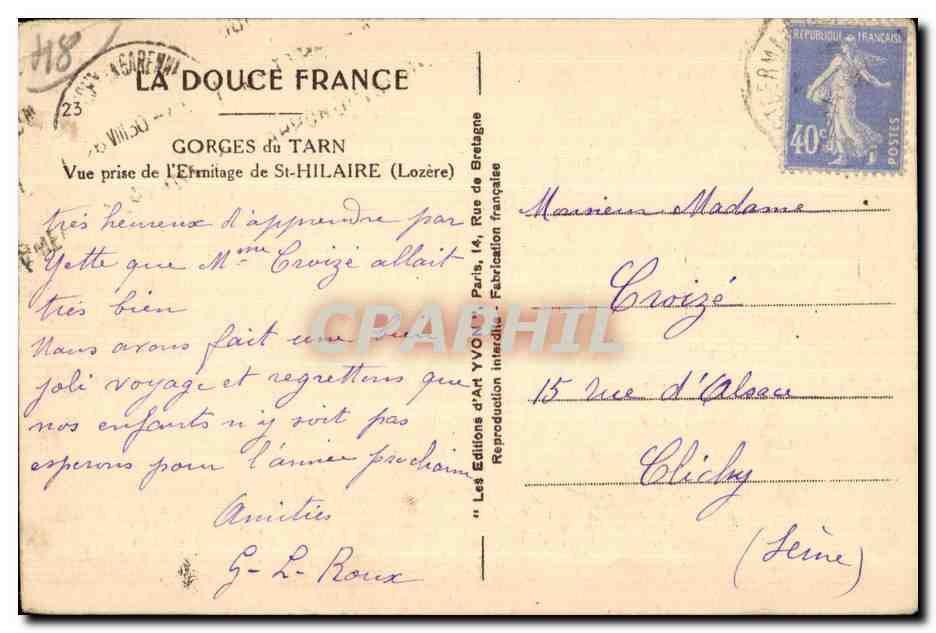 48
LA DOUCE FRANCE
23
GORGES du TARN
Vue prise de l'Ermitage de St-HILAIRE (Lozère)
très heureux d'apprendre par
Yette que Mme Croizé allait
très bien
Nous avons fait une bien
joli voyage et regrettons que
nos enfants n'y soit pas
esperons pour l'année prochaine
Amitiés
G-L-Roux
" Les Editions d'Art YVON " Paris, 14, Rue de Bretagne
Reproduction interdite - Fabrication française
RÉPUBLIQUE FRANÇAISE
40c
POSTES
Monsieur Madame
Croizé
15 rue d'Alsace
Clichy
(Seine)
CPAPHIL